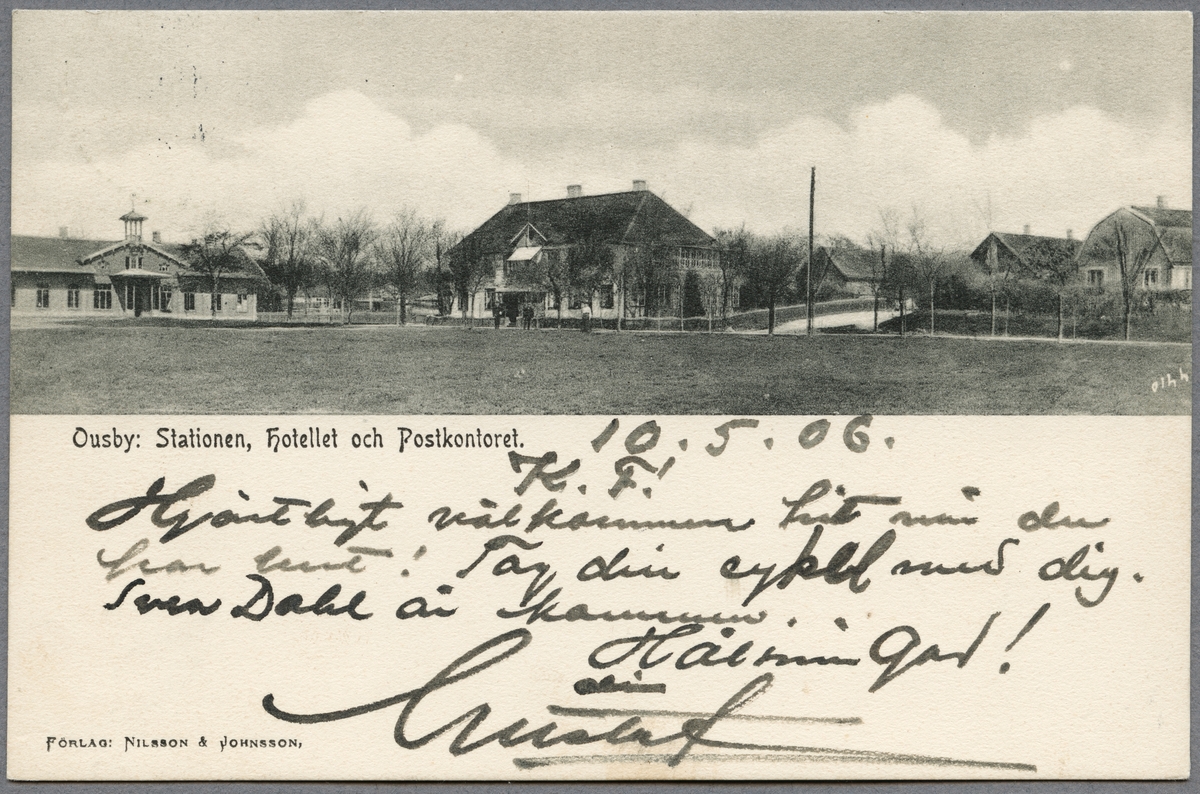 Ousby: Stationen, Hotellet och Postkontoret.
10.5.06.
K. F.!
Hjärtligt välkommen hit när du
har lust! Tag din cykel med dig.
Sven Dahl är kommen.
Hälsning Gud!
din
Gustaf
Förlag: Nilsson & Johnsson,